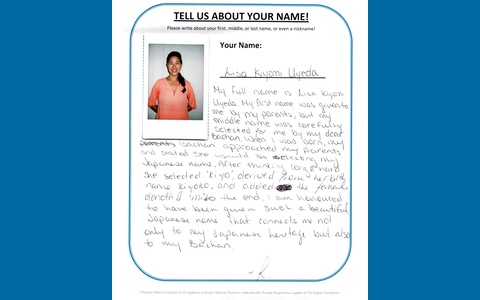 TELL US ABOUT YOUR NAME!
Please write about your first, middle, or last name, or even a nickname!
Your Name:
Lisa Kiyomi Uyeda
My full name is Lisa Kiyomi
Uyeda. My first name was given to
me by my parents, but my
middle name was carefully
selected for me by my dear
Bachan. When I was born, my
Bachan approached my parents
and stated she would be selecting my
Japanese name. After thinking long & hard
she selected 'Kiyo', derived from her birth
name Kiyoko, and added the female
'mi' to the end. I am honoured
to have been given such a beautiful
Japanese name that connects me not
only to my Japanese heritage but also
to my Bachan.